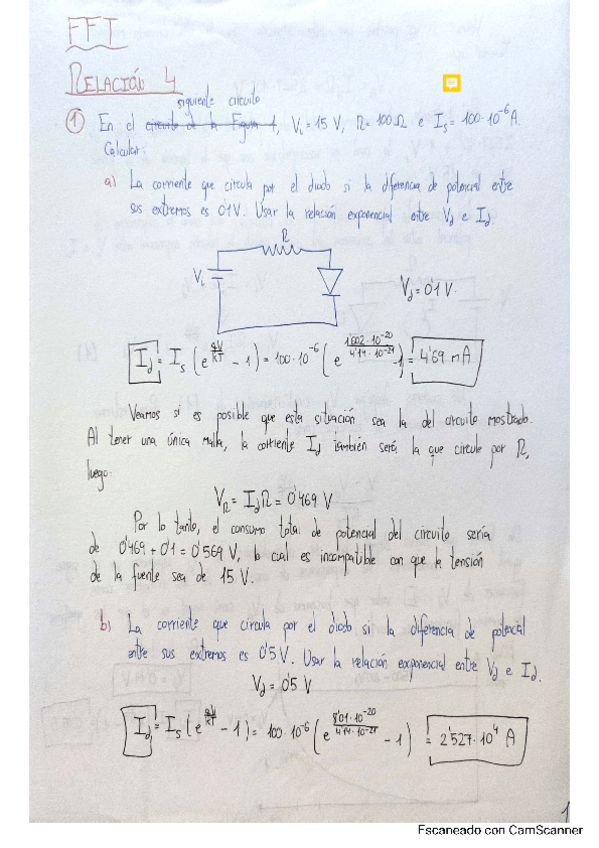 FFT
RELACIÓN 4
siguiente circuito
① En el circuito de la Figura 1, V_i = 15 V, R = 100 Ω e I_s = 100·10^-6 A.
Calcular:
a) La corriente que circula por el diodo si la diferencia de potencial entre
sus extremos es 0'1 V. Usar la relación exponencial entre V_d e I_d.
R
V_i
V_d = 0'1 V.
I_d = I_s (e^(qV/KT) - 1) = 100·10^-6 (e^(1'602·10^-20/4'14·10^-21) - 1) = 4'69 mA.
Veamos si es posible que esta situación sea la del circuito mostrado.
Al tener una única malla, la corriente I_d también será la que circule por R,
luego:
V_R = I_d R = 0'469 V
Por lo tanto, el consumo total de potencial del circuito sería
de 0'469 + 0'1 = 0'569 V, lo cual es incompatible con que la tensión
de la fuente sea de 15 V.
b) La corriente que circula por el diodo si la diferencia de potencial
entre sus extremos es 0'5 V. Usar la relación exponencial entre V_d e I_d.
V_d = 0'5 V
I_d = I_s (e^(qV/KT) - 1) = 100·10^-6 (e^(8'01·10^-20/4'14·10^-21) - 1) = 2'527·10^4 A
1
Escaneado con CamScanner